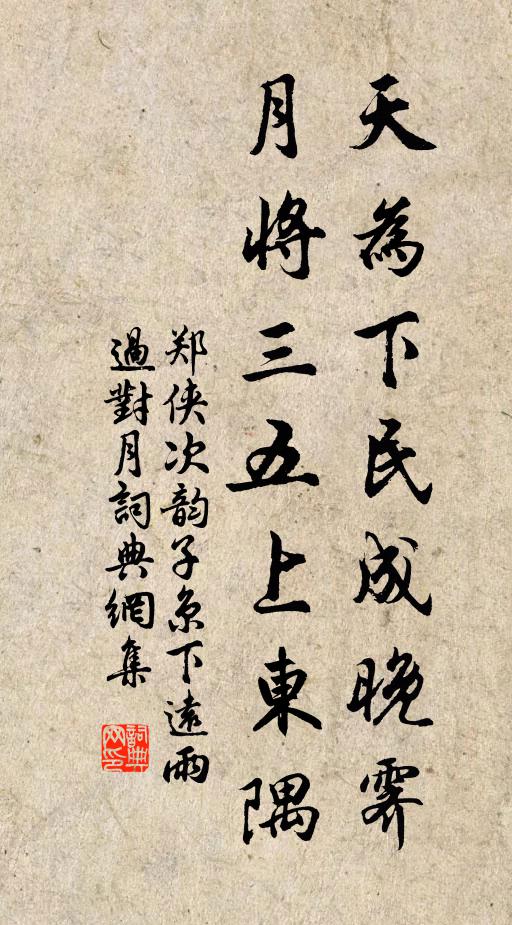 天為下民成晚霽
月將三五上東隅
郑侠次韵子京下远雨
過對月詞典網集
詞典網印